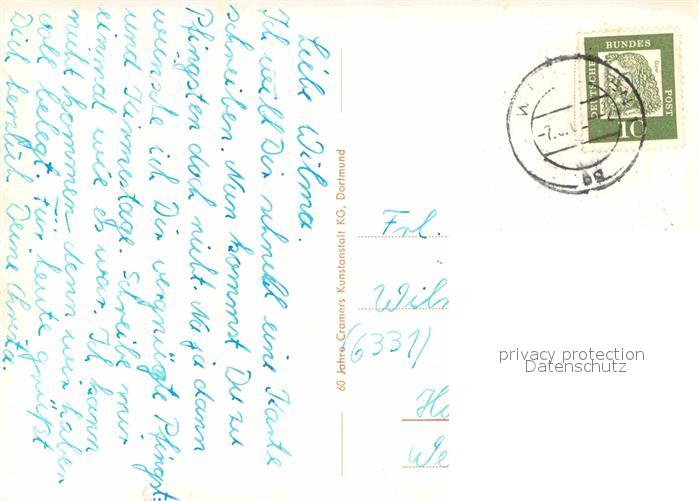 Liebe Wilma.
Ich will Dir schnell eine Karte
schreiben. Nun kommst Du zu
Pfingsten doch nicht. Na ja dann
wünsche ich Dir vergnügte Pfingst-
und Kirmestage. Schreibe mir
einmal wie es war. Ich kann
nicht kommen denn wir haben
voll belegt. Für heute grüßt
Dich herzlich Deine Christa.
60 Jahre Cramers Kunstanstalt KG, Dortmund
DEUTSCHE BUNDES POST
10
Frl.
(6331)
privacy protection
Datenschutz